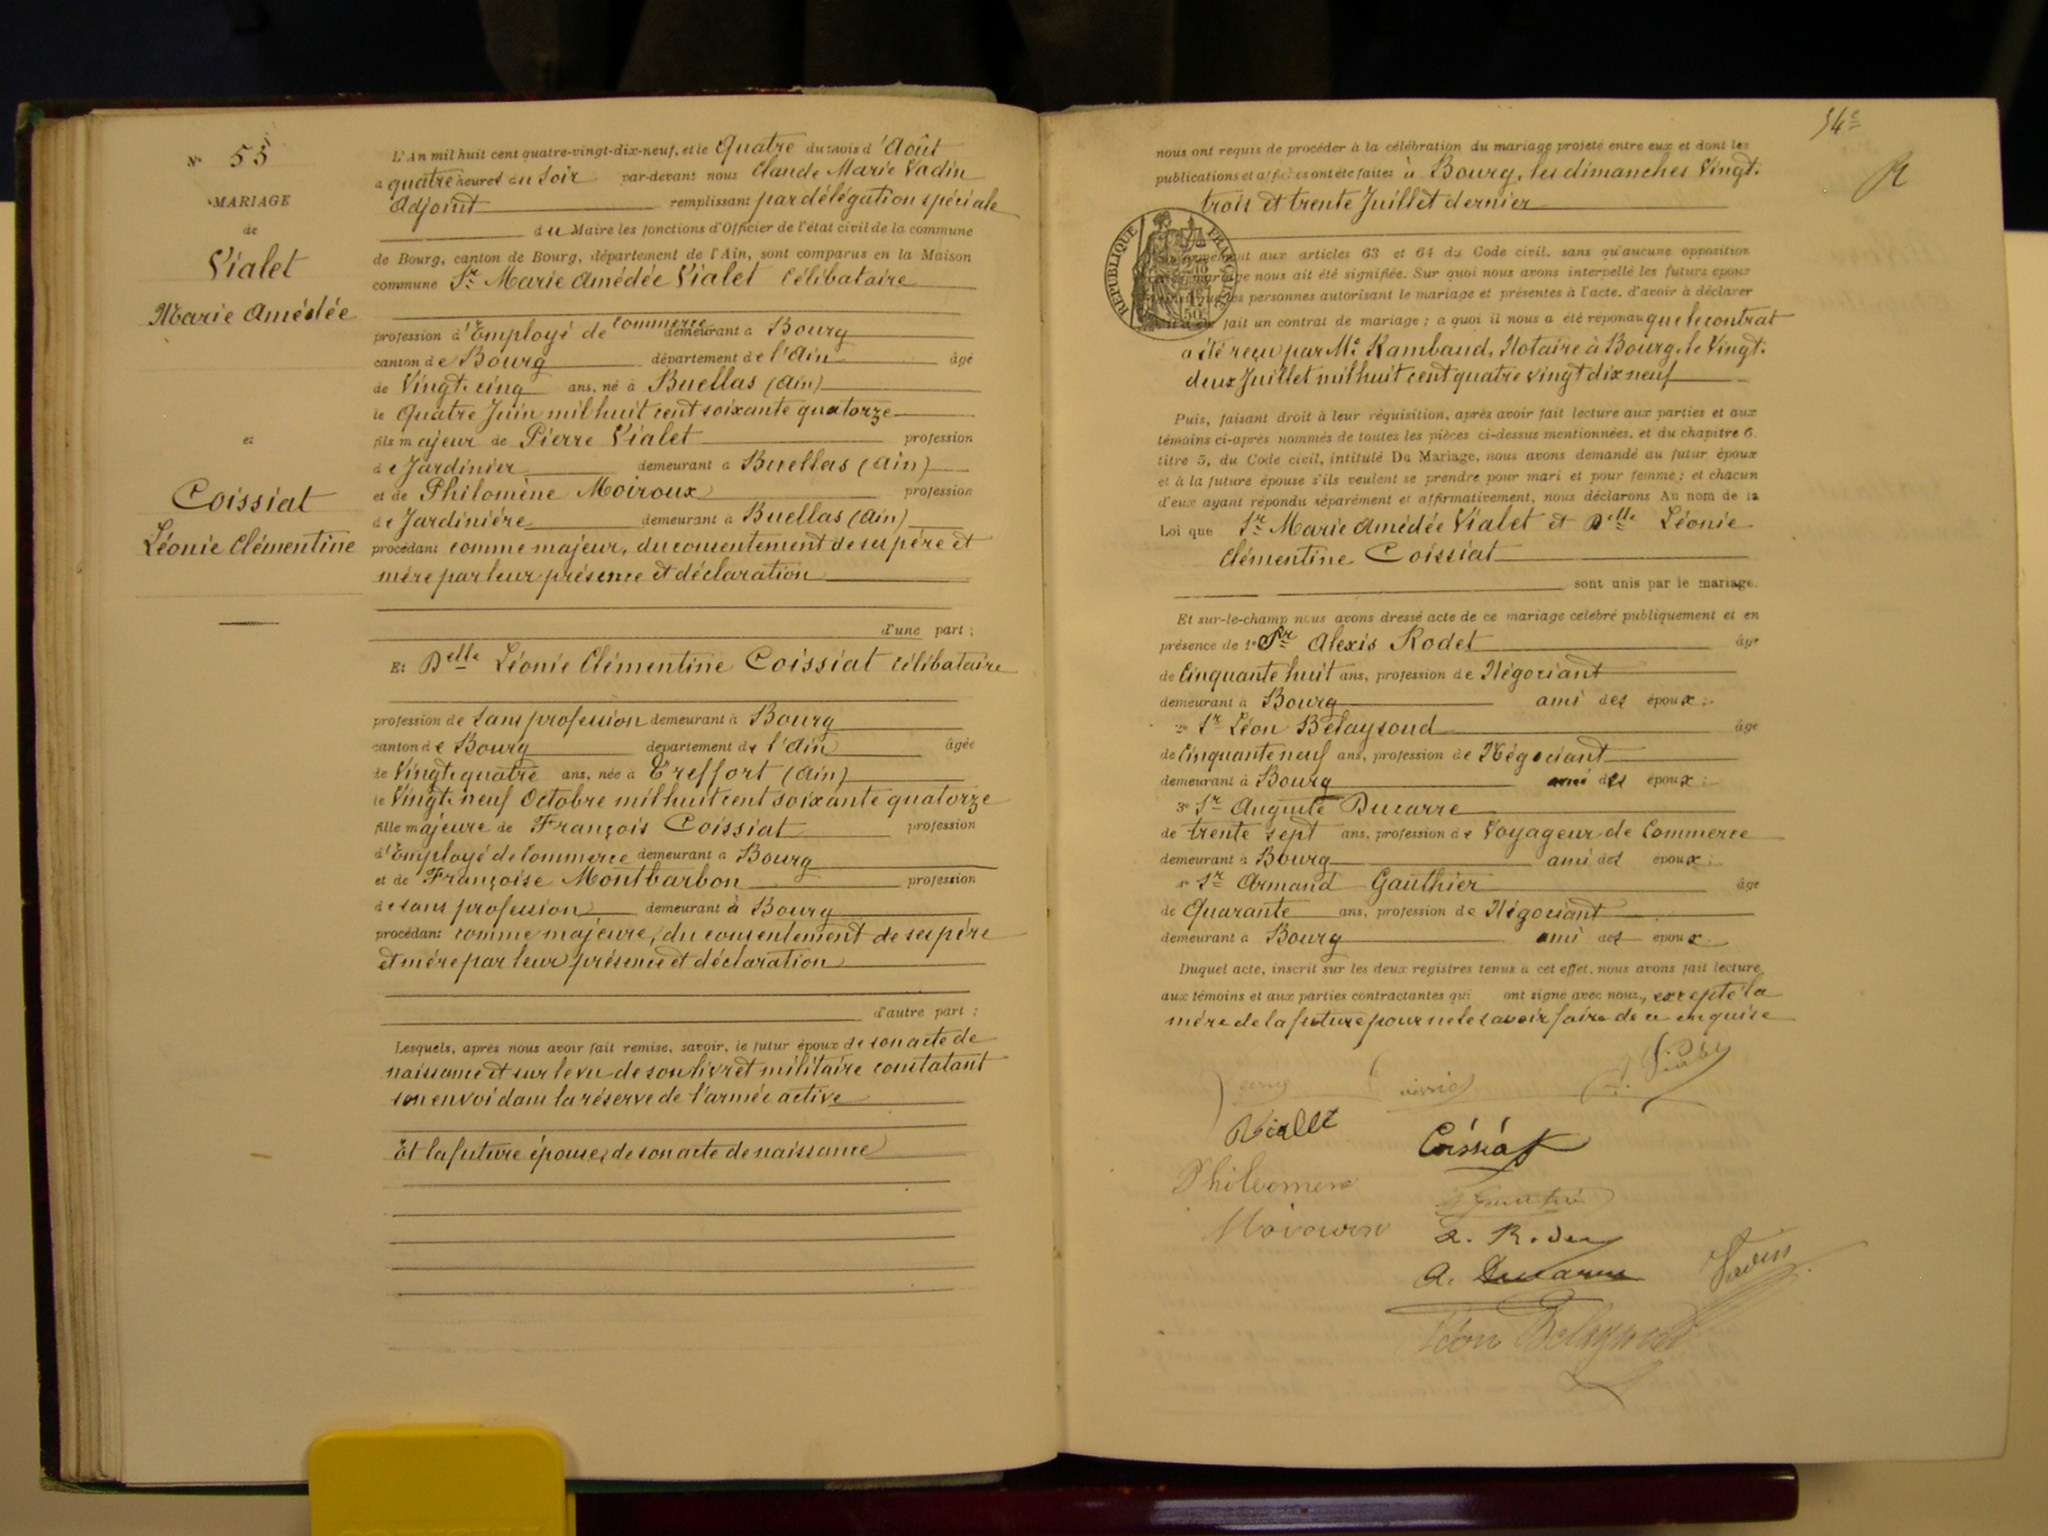 N° 55
MARIAGE
de
Vialet
Marie Amédée
et
Coissiat
Léonie Clémentine
L'An mil huit cent quatre-vingt-dix-neuf, et le Quatre du mois d'Août
à quatre heures du Soir par-devant nous Claude Marie Vadin
Adjoint remplissant par délégation spéciale
du Maire les fonctions d'Officier de l'état civil de la commune
de Bourg, canton de Bourg, département de l'Ain, sont comparus en la Maison
commune Sr Marie Amédée Vialet Célibataire
profession d'Employé de Commerce demeurant à Bourg
canton de Bourg département de l'Ain âgé
de Vingt-cinq ans, né à Buellas (Ain)
le Quatre Juin mil huit cent soixante quatorze
fils majeur de Pierre Vialet profession
de Jardinier demeurant à Buellas (Ain)
et de Philomène Moiroux profession
de Jardinière demeurant à Buellas (Ain)
procédant comme majeur, du consentement de ses père et
mère par leur présence et déclaration
d'une part ;
Et Delle Léonie Clémentine Coissiat Célibataire
profession de sans profession demeurant à Bourg
canton de Bourg département de l'Ain âgée
de Vingt-quatre ans, née à Treffort (Ain)
le Vingt-neuf Octobre mil huit cent soixante quatorze
fille majeure de François Coissiat profession
d'Employé de Commerce demeurant à Bourg
et de Françoise Montbarbon profession
de sans profession demeurant à Bourg
procédant comme majeure, du consentement de ses père
et mère par leur présence et déclaration
d'autre part ;
Lesquels, après nous avoir fait remise, savoir, le futur époux de son acte de
naissance et sur le vu de son livret militaire constatant
son envoi dans la réserve de l'armée active
Et la future épouse, de son acte de naissance
54e
R
nous ont requis de procéder à la célébration du mariage projeté entre eux et dont les
publications et affiches ont été faites à Bourg, les dimanches Vingt-
trois et trente Juillet dernier
REPUBLIQUE FRANÇAISE
aux articles 63 et 64 du Code civil, sans qu'aucune opposition
mariage nous ait été signifiée. Sur quoi nous avons interpellé les futurs époux
les personnes autorisant le mariage et présentes à l'acte, d'avoir à déclarer
fait un contrat de mariage ; à quoi il nous a été répondu que le contrat
a été reçu par Me Rambaud, Notaire à Bourg, le Vingt-
deux Juillet mil huit cent quatre vingt dix neuf
Puis, faisant droit à leur réquisition, après avoir fait lecture aux parties et aux
témoins ci-après nommés de toutes les pièces ci-dessus mentionnées, et du chapitre 6,
titre 5, du Code civil, intitulé Du Mariage, nous avons demandé au futur époux
et à la future épouse s'ils veulent se prendre pour mari et pour femme ; et chacun
d'eux ayant répondu séparément et affirmativement, nous déclarons Au nom de la
Loi que Sr Marie Amédée Vialet et Delle Léonie
Clémentine Coissiat
sont unis par le mariage.
Et sur-le-champ nous avons dressé acte de ce mariage célébré publiquement et en
présence de 1° Sr Alexis Rodet âgé
de Cinquante huit ans, profession de Négociant
demeurant à Bourg ami des époux ;
2° Sr Léon Belaysoud âgé
de Cinquante neuf ans, profession de Négociant
demeurant à Bourg ami des époux ;
3° Sr Auguste Ducarre
de trente sept ans, profession de Voyageur de Commerce
demeurant à Bourg ami des époux ;
Sr Armand Gauthier âgé
de Quarante ans, profession de Négociant
demeurant à Bourg ami des époux.
Duquel acte, inscrit sur les deux registres tenus à cet effet, nous avons fait lecture
aux témoins et aux parties contractantes qui ont signé avec nous, excepté la
mère de la future pour ne le savoir faire de ce enquise
Vialet
Coissiat
Philomene
A. Ducarre
Vadin
Léon Belaysoud